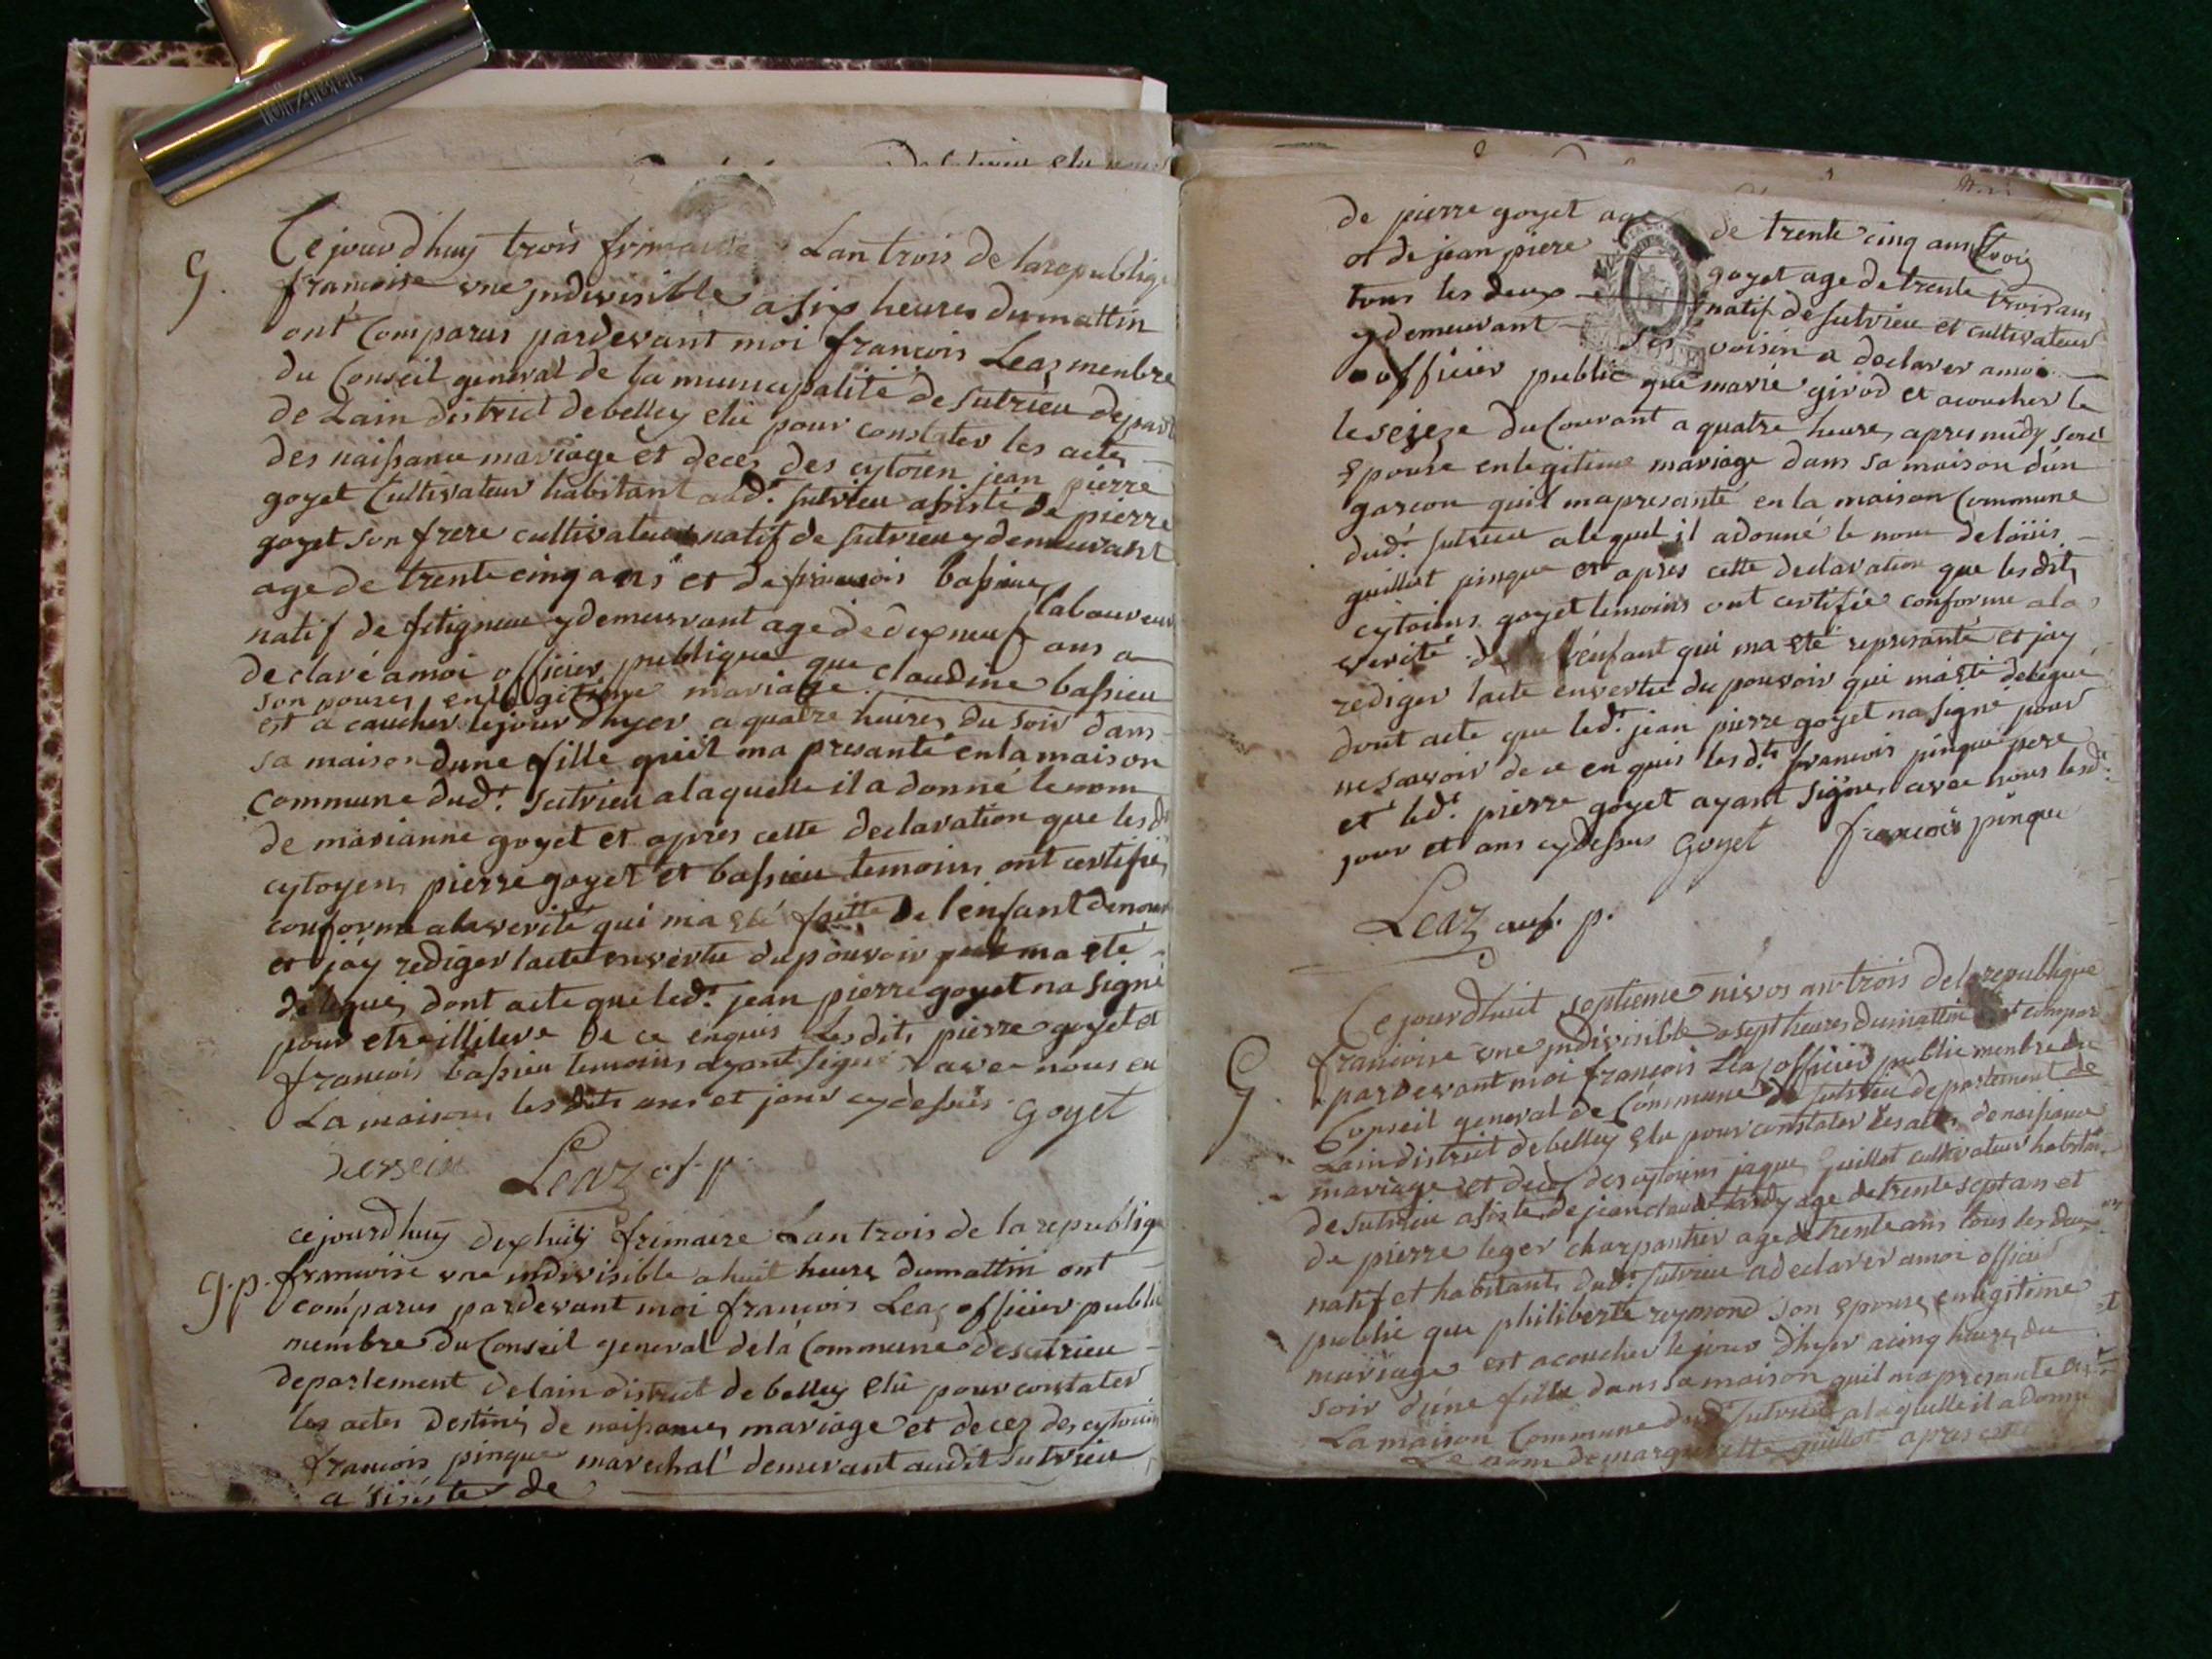 G.
Ce jourdhuy trois frimaire Lan trois de la republiq
francoise une jndivisible a six heures du mattin
ont Comparus pardevant moi francois Leaz menbre
du Conseil general de la municipalité de Sutrieu depart
de Lain district de belley elu pour constater les actes
des naissance mariage et deces des cytoien jean pierre
goyet Cultivateur habitant aud.t Sutrieu assisté de pierre
goyet son frere cultivateur natif de Sutrieu y demeurant
age de trente cinq ans et de francois bassieu laboureur
natif de fitignieu y demeurant age de dixneuf ans a
declaré a moi officier publique que claudine bassieu
son pouses en legitime mariage
est a caucher le jour dhyer a quatre heures du soir dans
sa maison dune fille quil ma presanté en la maison
Commune dud.t Sutrieu a laquelle il a donné le nom
de marianne goyet et apres cette declaration que les d.t
cytoyens pierre goyet et bassieu temoins ont certifié
conforme a la verité qui ma eté faitte de l'enfant denom
et jay rediger lacte en vertu du pouvoir qui ma eté
delegué dont acte que led.t jean pierre goyet na signé
pour etre illitere de ce enquis Les dits pierre goyet et
francois bassieu temoins ayant signé avec nous en
La maison les dits ans et jour cy dessus Goyet
Leaz of. p.
ce jourdhuy dixhuit frimaire Lan trois de la republiq
g.p. francoise une indivisible a huit heures du mattin ont
comparus pardevant moi francois Leaz officier public
membre du Conseil general de la Commune de sutrieu
departement de lain district de belley elu pour constater
les actes destinés de naissances mariage et decez des cytoiens
francois pinque marechal demeurant audit Sutrieu
a sisister de
de pierre goyet age de trente cinq ans
et de jean piere goyet age de trente trois ans
tous les deux natif de Sutrieu et cultivateur
y demeurant ses voisin a declarer a moi
officier public que marie girod et acoucher le
le seieze du Courant a quatre heures apres midy sone
epouse en legitime mariage dans sa maison dun
garcon quil ma presanté en la maison Commune
dud.t Sutrieu a lequel il a donné le nom de loüis
guillot pinque et apres cette declaration que les dits
cytoiens goyet temoins ont certifié conforme a la
verité de l'enfant qui ma eté represanté et jay
rediger lacte en vertu du pouvoir qui ma eté delegué
dont acte que led.t jean pierre goyet na signé pour
ne savoir de ce enquis les d.ts francois pinque pere
et led.t pierre goyet ayant signes avec nous les d.ts
jour et ans cy dessus Goyet francois pinque
Leaz ouf. p.
Ce jourdhuit septieme nivos an trois de la republique
G. francoise une jndivisible a sept heures du mattin ont compar
pardevant moi francois Leaz officier public menbre du
Conseil general de Commune de Sutrieu departement de
Lain district de belley elu pour constater les actes de naissance
mariage et deces des cytoiens jaque guillot cultivateur habitan
de Sutrieu asiste de jean claude tardy age de trente sept ans et
de pierre leger charpantier age de trente ans tous les deux
natif et habitants dud.t Sutrieu a declarer a moi officier
public que philiberte reymond son epouse en legitime
mariage est acoucher le jour dhyer a cinq heures du
soir dune fille dans sa maison quil ma presante en
La maison Commune dud.t Sutrieu a laquelle il a donné
Le nom de marguerite guillot apres cette